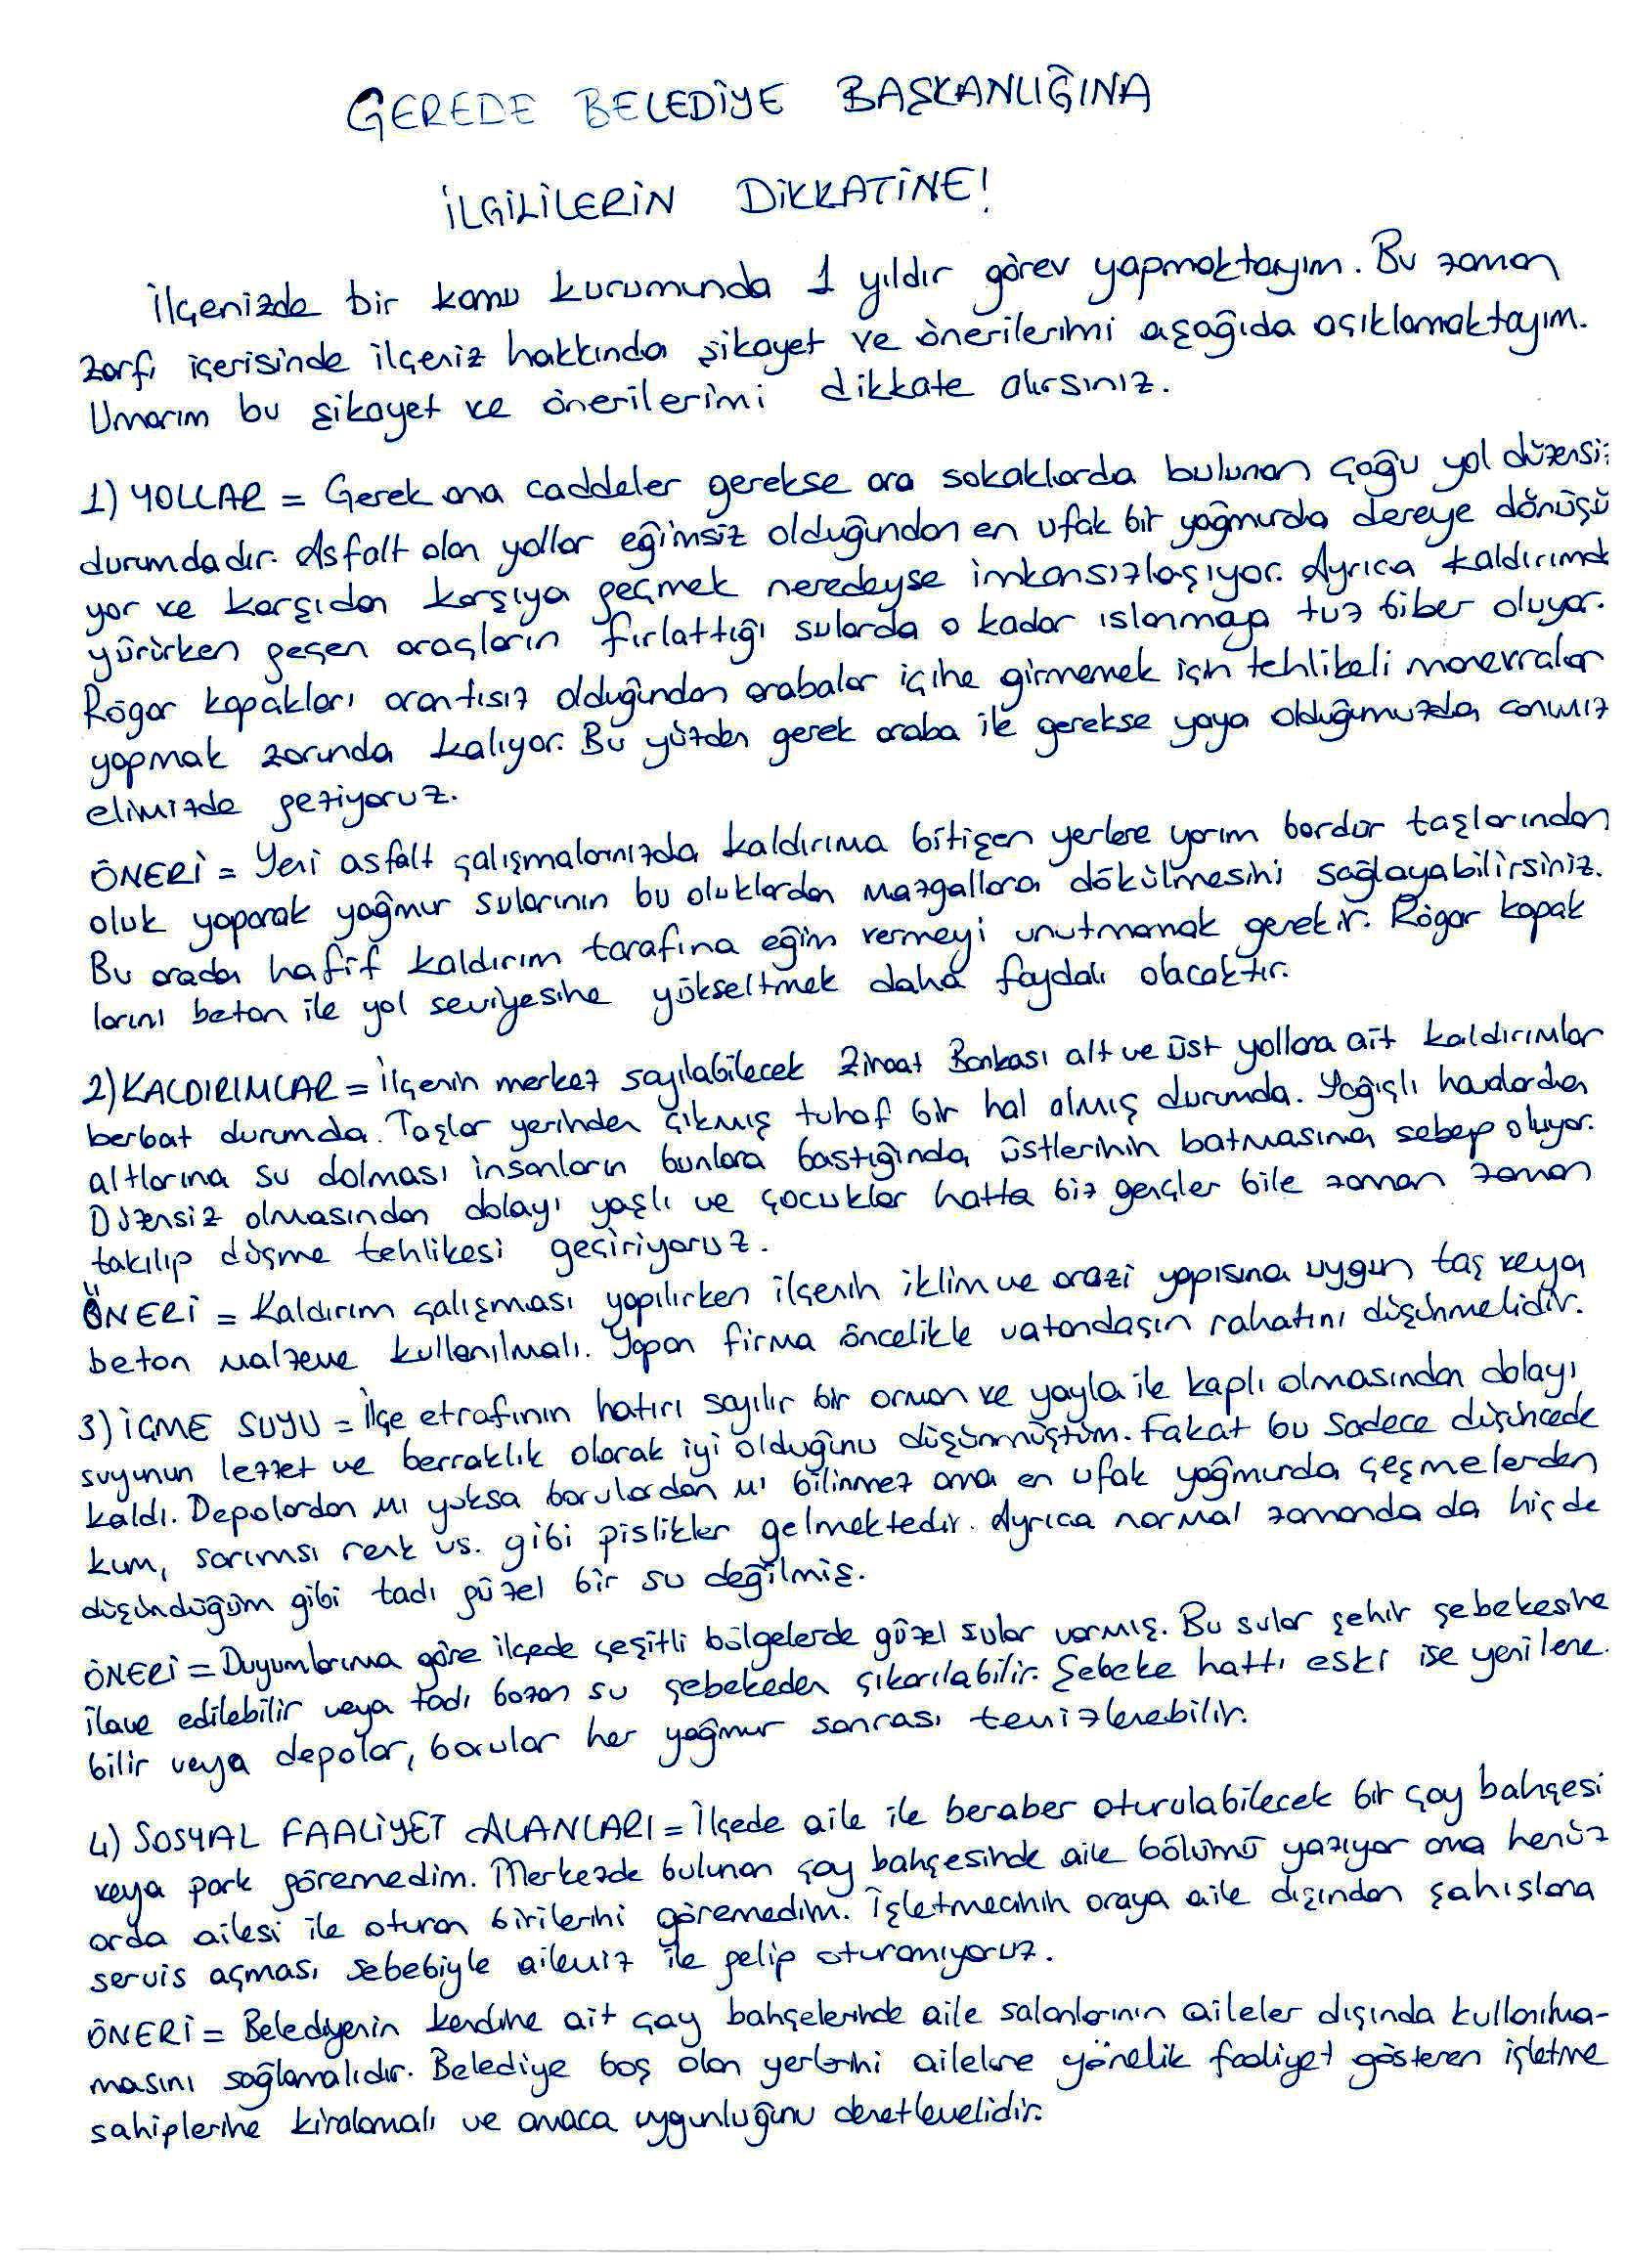 GEREDE BELEDİYE BAŞKANLIĞINA
İLGİLİLERİN DİKKATİNE!
İlçenizde bir kamu kurumunda 1 yıldır görev yapmaktayım. Bu zaman
zarfı içerisinde ilçeniz hakkında şikayet ve önerilerimi aşağıda açıklamaktayım.
Umarım bu şikayet ve önerilerimi dikkate alırsınız.
1) YOLLAR = Gerek ana caddeler gerekse ara sokaklarda bulunan çoğu yol düzensi
durumdadır. Asfalt olan yollar eğimsiz olduğundan en ufak bir yağmurda dereye dönüşü
yor ve karşıdan karşıya geçmek neredeyse imkansızlaşıyor. Ayrıca kaldırımda
yürürken geçen araçların fırlattığı sularda o kadar ıslanmaya tuz biber oluyor.
Rögar kapakları orantısız olduğundan arabalar içine girmemek için tehlikeli manevralar
yapmak zorunda kalıyor. Bu yüzden gerek araba ile gerekse yaya olduğumuzda canımız
elimizde geziyoruz.
ÖNERİ = Yeni asfalt çalışmalarınızda kaldırıma bitişen yerlere yarım bordür taşlarından
oluk yaparak yağmur sularının bu oluklardan mazgallara dökülmesini sağlayabilirsiniz.
Bu arada hafif kaldırım tarafına eğim vermeyi unutmamak gerekir. Rögar kapak
larını beton ile yol seviyesine yükseltmek daha faydalı olacaktır.
2) KALDIRIMLAR = İlçenin merkez sayılabilecek Ziraat Bankası alt ve üst yollara ait kaldırımlar
berbat durumda. Taşlar yerinden çıkmış tuhaf bir hal almış durumda. Yağışlı havalarda
altlarına su dolması insanların bunlara bastığında üstlerinin batmasına sebep oluyor.
Düzensiz olmasından dolayı yaşlı ve çocuklar hatta biz gençler bile zaman zaman
takılıp düşme tehlikesi geçiriyoruz.
ÖNERİ = Kaldırım çalışması yapılırken ilçenin iklim ve arazi yapısına uygun taş veya
beton malzeme kullanılmalı. Yapan firma öncelikle vatandaşın rahatını düşünmelidir.
3) İÇME SUYU = İlçe etrafının hatırı sayılır bir orman ve yayla ile kaplı olmasından dolayı
suyunun lezzet ve berraklık olarak iyi olduğunu düşünmüştüm. Fakat bu sadece düşüncede
kaldı. Depolardan mı yoksa borulardan mı bilinmez ama en ufak yağmurda çeşmelerden
kum, sarımsı renk vs. gibi pislikler gelmektedir. Ayrıca normal zamanda da hiçde
düşündüğüm gibi tadı güzel bir su değilmiş.
ÖNERİ = Duyumlarıma göre ilçede çeşitli bölgelerde güzel sular varmış. Bu sular şehir şebekesine
ilave edilebilir veya tadı bozan su şebekeden çıkarılabilir. Şebeke hattı eski ise yenilene
bilir veya depolar, borular her yağmur sonrası temizlenebilir.
4) SOSYAL FAALİYET ALANLARI = İlçede aile ile beraber oturulabilecek bir çay bahçesi
veya park göremedim. Merkezde bulunan çay bahçesinde aile bölümü yazıyor ama henüz
orda ailesi ile oturan birilerini göremedim. İşletmecinin oraya aile dışından şahıslara
servis açması sebebiyle ailemiz ile gelip oturamıyoruz.
ÖNERİ = Belediyenin kendine ait çay bahçelerinde aile salonlarının aileler dışında kullanılma-
masını sağlamalıdır. Belediye boş olan yerlerini ailelere yönelik faaliyet gösteren işletme
sahiplerine kiralamalı ve amaca uygunluğunu denetlemelidir.